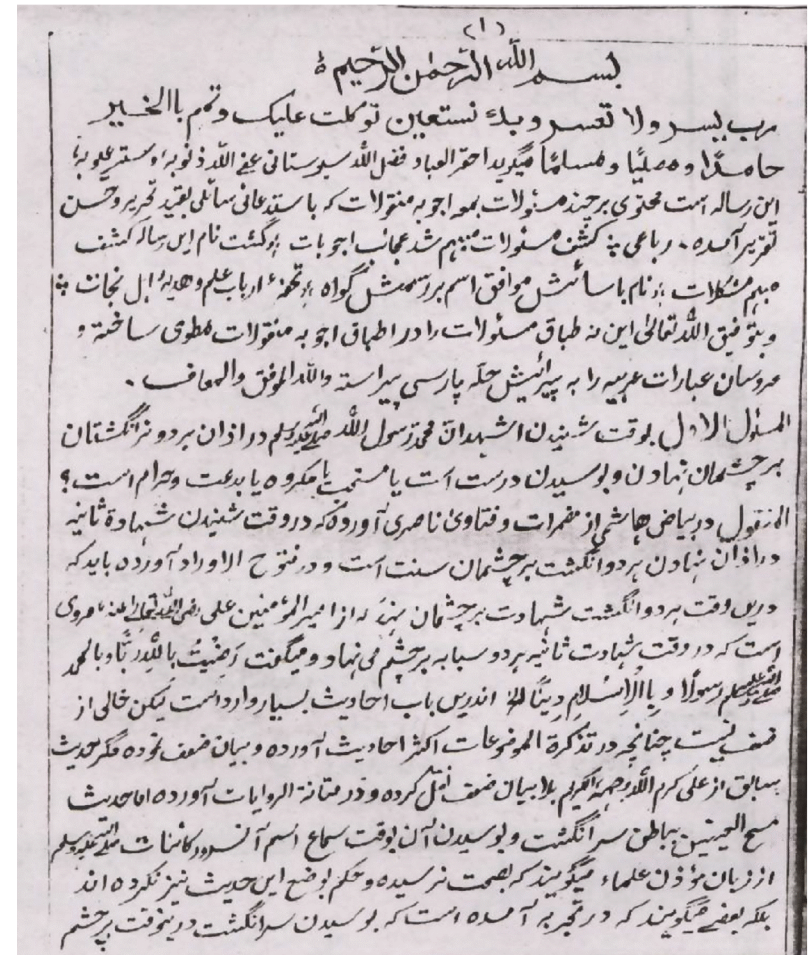 (۱)
بسم الله الرحمن الرحيم ۵
رب يسر ولا تعسر وبك نستعين توكلت عليك وتمم باالخير
حامدًا ومصليًا ومسلمًا میگوید احقر العباد فضل الله سیوستانی عفے الله ذنوبه وستر عیوبه
این رساله است محتوی بر چند مسئولات بمعه اجوبه منقولات که باستدعائی سائلی بقید تحریر و حسن
تقریر آمده ۰ رباعی پے کشف مسئولات مبهم شد عجائب اجوبات ٭ گشت نام این رساله کشف
مبهم مشکلات ٭ نام باسائش موافق اسم بر رسمش گواه ٭ تحفهٔ ارباب علم و هدیهٔ اهل نجات
وبتوفیق الله تعالیٰ این نه طباق مسئولات را در اطباق اجوبه منقولات مطوی ساخته و
عروسان عبارات عربیه را به پیرائیش حله پارسی پیراسته والله الموفق والمعاف ۰
المسئول الاول بوقت شنیدن اشهدان محمد رسول الله صلی الله علیه وسلم در اذان هر دو نر انگشتان
بر چشمان نهادن و بوسیدن درست است یا مستحب یا مکروه یا بدعت و حرام است؟
المنقول در بیاض هاشمی از مضمرات و فتاوی ناصری آورده که در وقت شنیدن شهادة ثانیه
در اذان نهادن هر دو انگشت بر چشمان سنت است و در فتوح الاوراد آورده باید که
درین وقت هر دو انگشت شهادت بر چشمان نهند که از امیر المؤمنین علی رضی الله تعالیٰ عنه مروی
است که در وقت شهادت ثانیه هر دو سبابه بر چشم می نهاد و میگفت رَضِیْتُ بِاللهِ رَبًّا وبالمحمد
صلی الله علیه وسلم رسولا و بِالْاِسْلَامِ دِیْنًا الخ اندریں باب احادیث بسیار وارد است لیکن خالی از
ضعف نیست چنانچه در تذکرة الموضوعات اکثر احادیث آورده و بیان ضعف نموده مگر حدیث
سابق از علی کرم الله وجهه الکریم بلا بیان ضعف نقل کرده و در متانة الروایات آورده اما حدیث
مسح العینین بباطن سر انگشت و بوسیدن آن بوقت سماع اسم آنسرور کائنات صلی الله علیه وسلم
از زبان مؤذن علماء میگویند که بصحت نرسیده و حکم بوضع این حدیث نیز نکرده اند
بلکه بعضے میگویند که در تجربه آمده است که بوسیدن سر انگشت درینوقت بر چشم